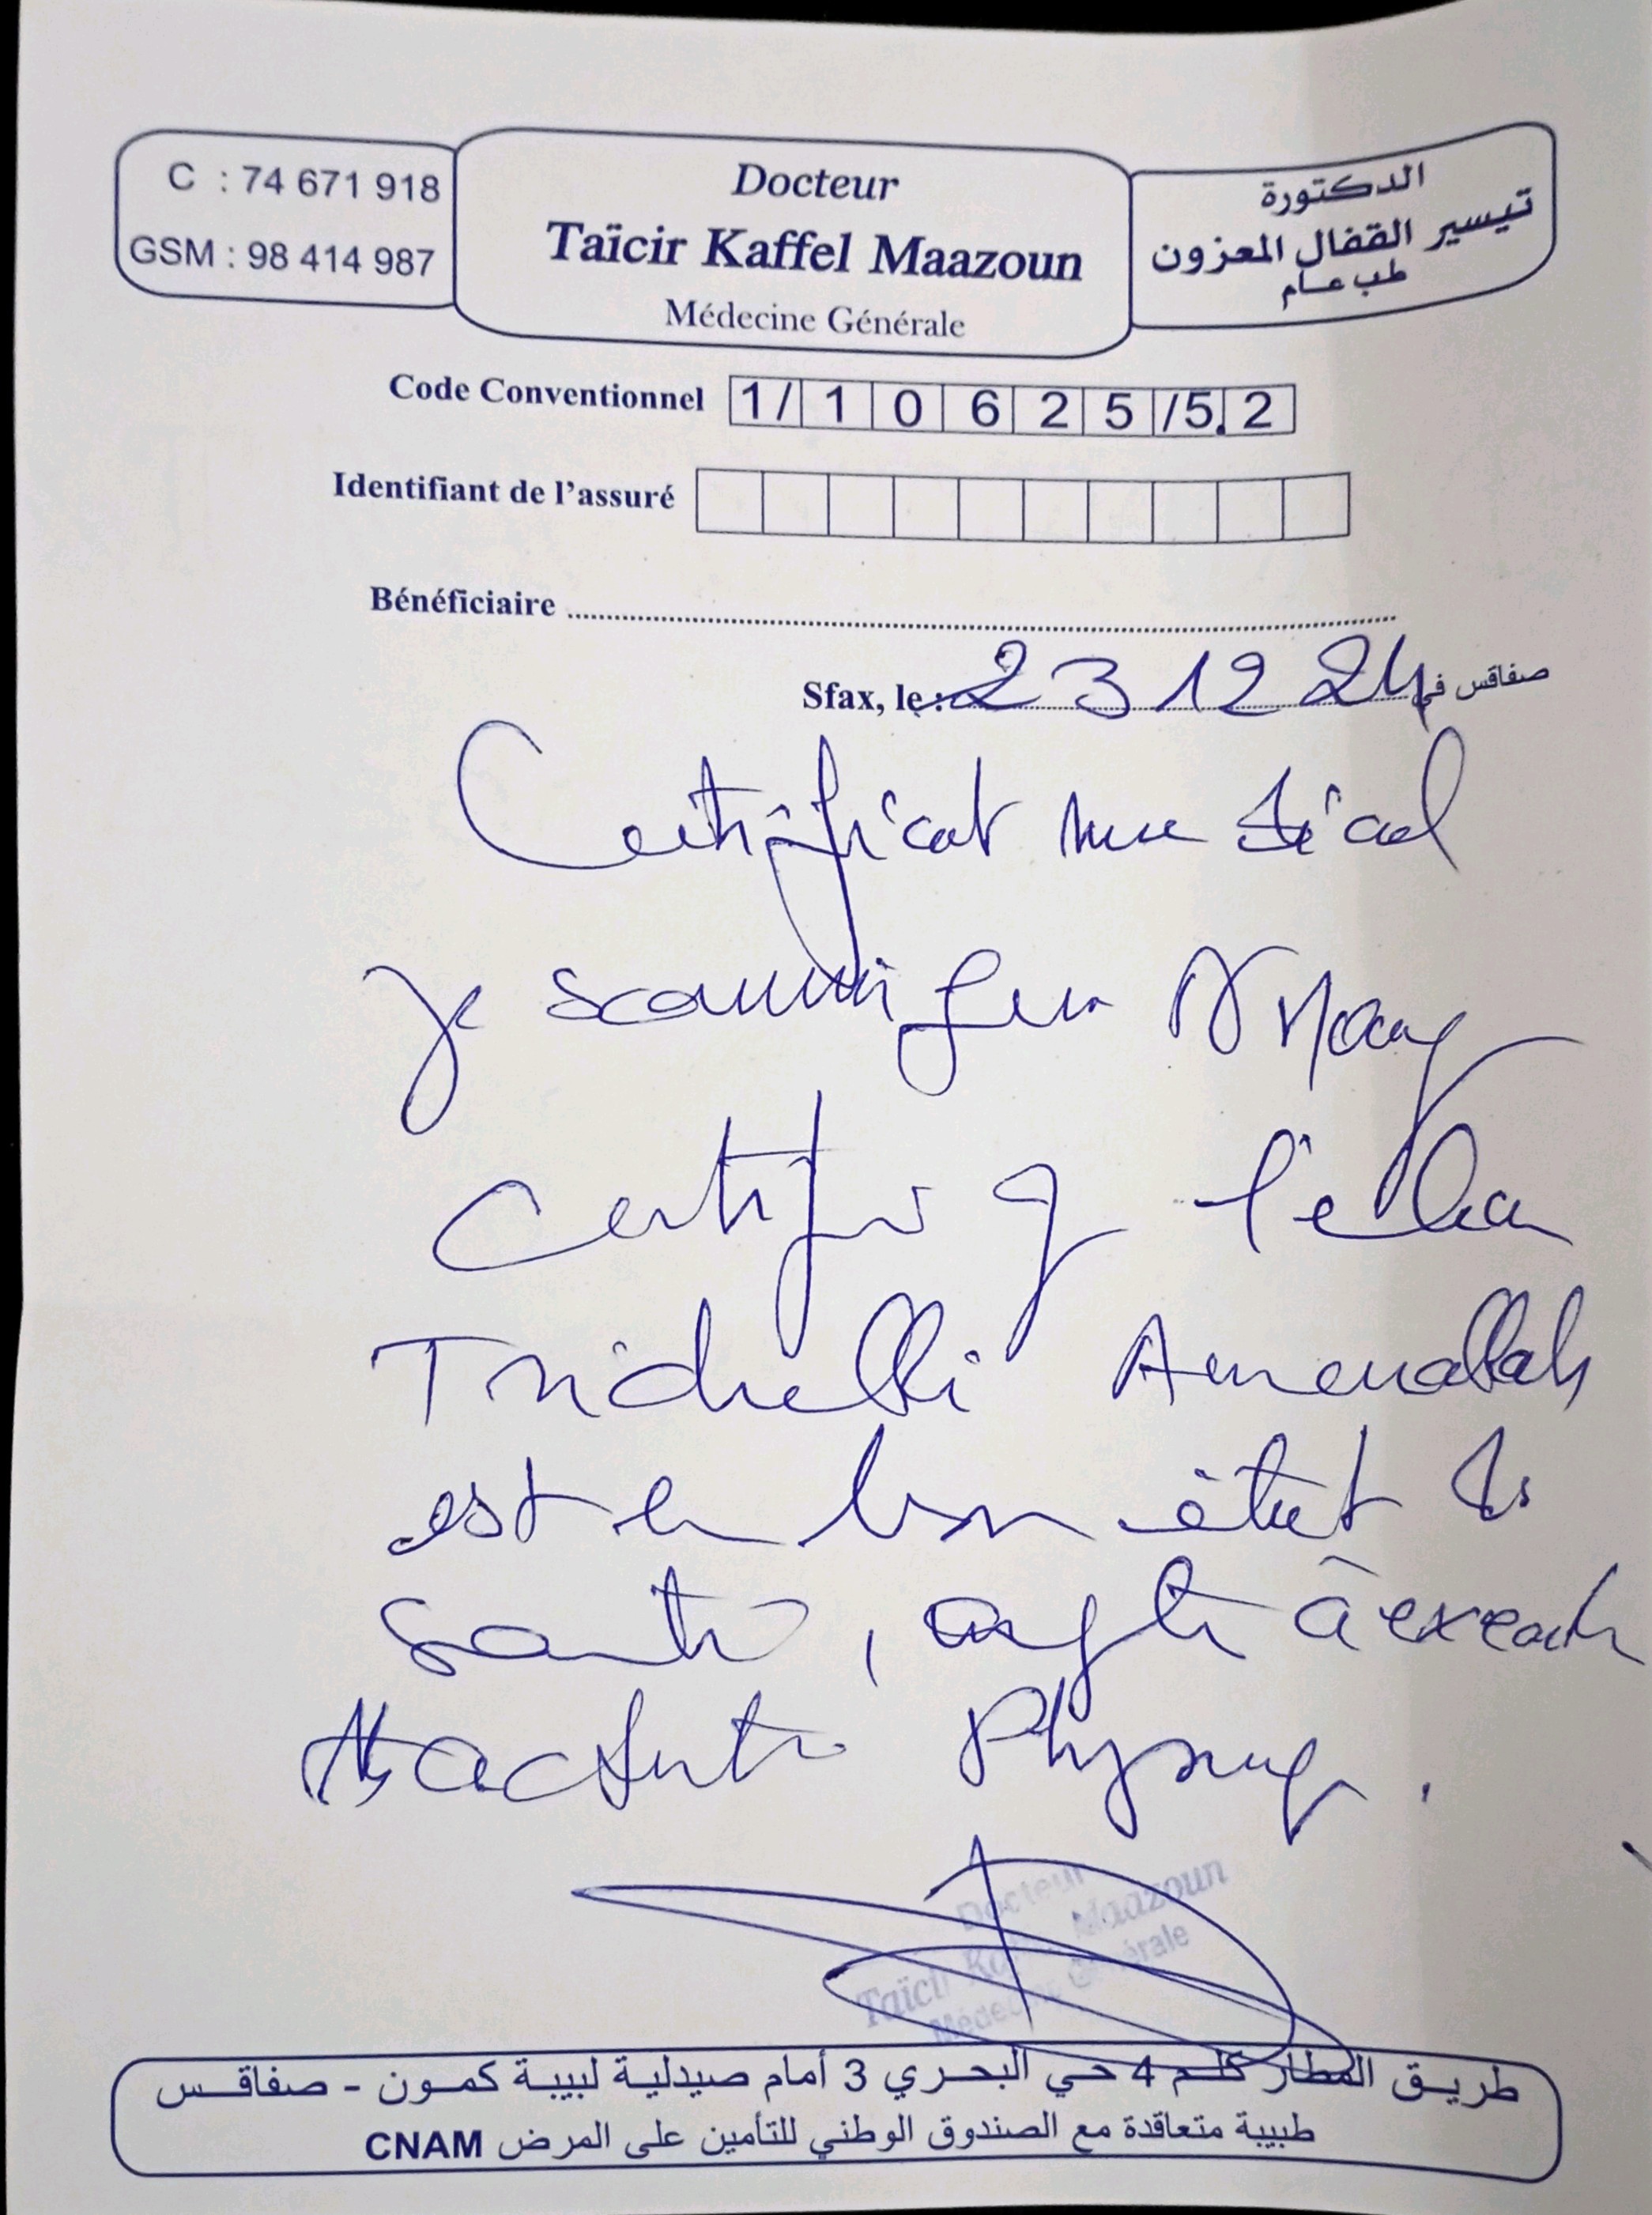 C : 74 671 918
GSM : 98 414 987
Docteur
Taïcir Kaffel Maazoun
Médecine Générale
الدكتورة
تيسير القفال المعزون
طب عام
Code Conventionnel 1/ 1 0 6 2 5 /5. 2
Identifiant de l'assuré
Bénéficiaire
Sfax, le : 23 12 24 صفاقس في
Certificat médical
Je
certifie q l'élève
Trichelli Amenallah
est en bon état de
santé, apte à exercer
activité Physique.
Docteur
Taïcir Kaffel Maazoun
Médecine Générale
طريق المطار كلم 4 حي البحري 3 أمام صيدلية لبيبة كمون - صفاقس
طبيبة متعاقدة مع الصندوق الوطني للتأمين على المرض CNAM